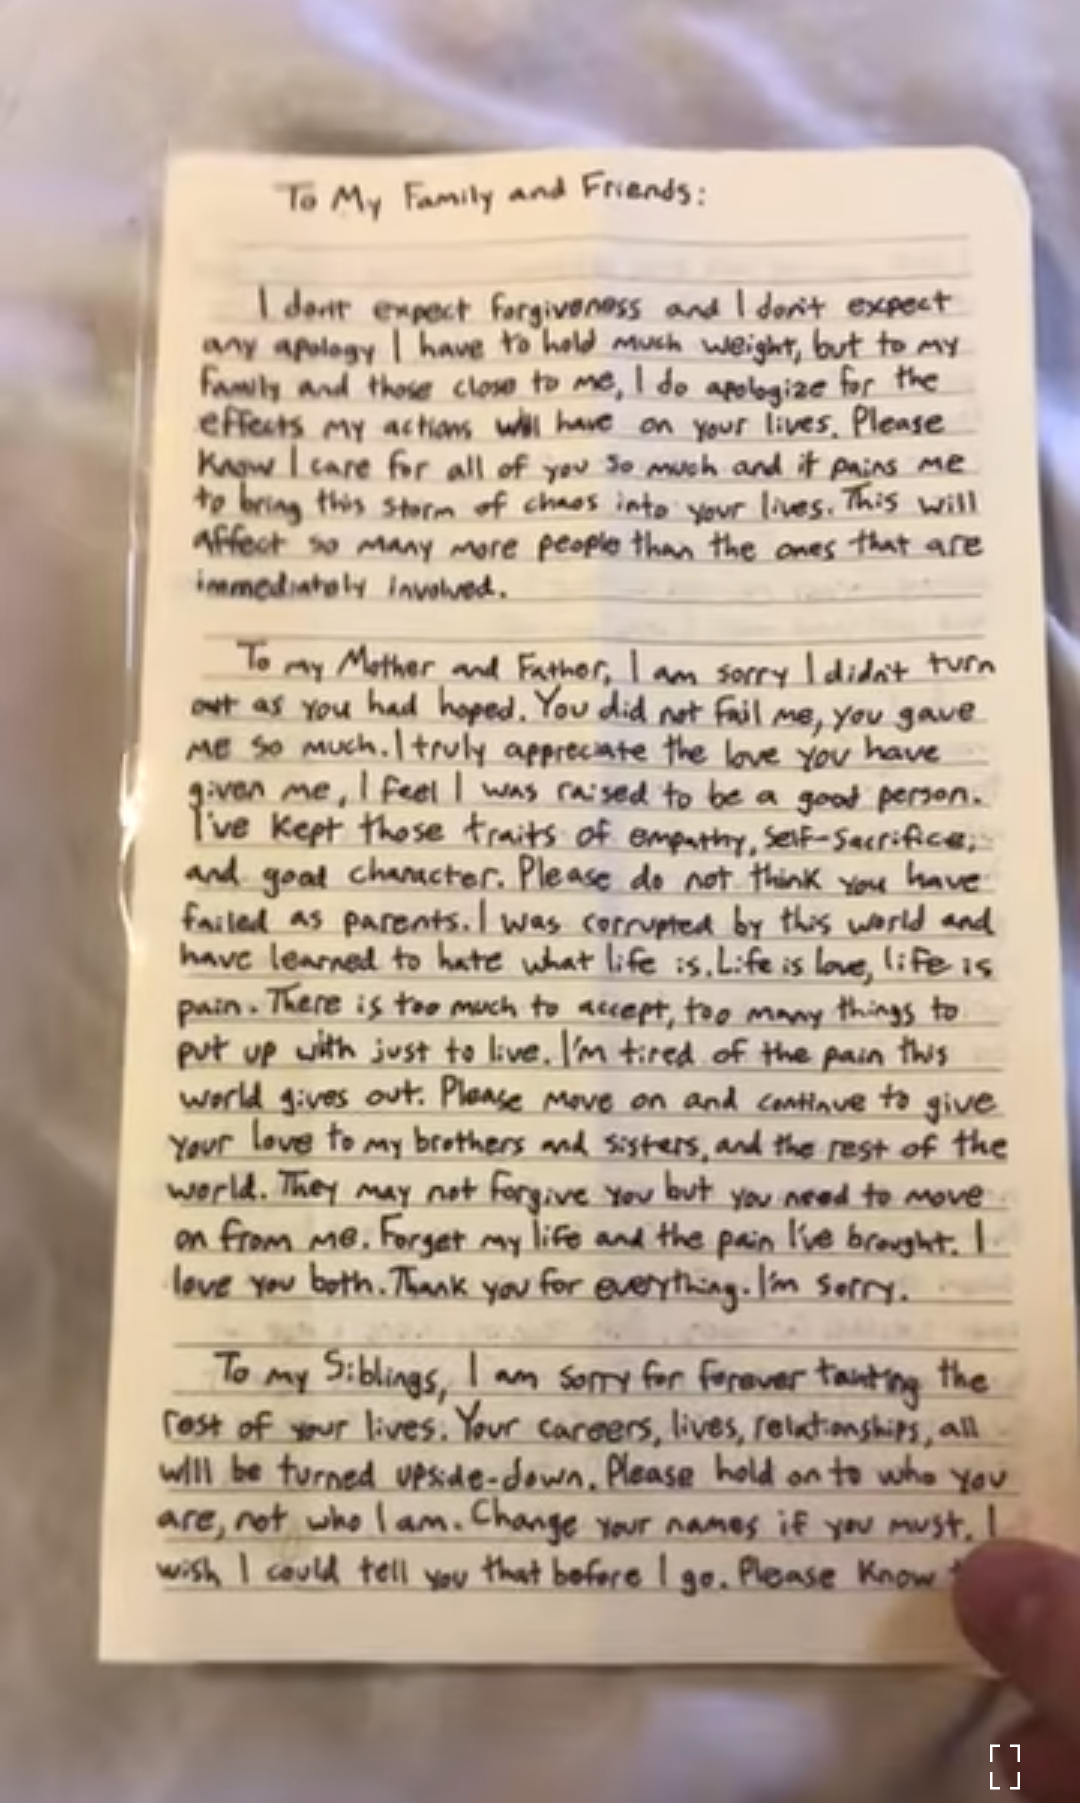 To My Family and Friends:
I don't expect forgiveness and I don't expect
any apology I have to hold much weight, but to my
family and those close to me, I do apologize for the
effects my actions will have on your lives. Please
know I care for all of you so much and it pains me
to bring this storm of chaos into your lives. This will
affect so many more people than the ones that are
immediately involved.
To my Mother and Father, I am sorry I didn't turn
out as you had hoped. You did not fail me, you gave
me so much. I truly appreciate the love you have
given me, I feel I was raised to be a good person.
I've kept those traits of empathy, self-sacrifice,
and good character. Please do not think you have
failed as parents. I was corrupted by this world and
have learned to hate what life is. Life is love, life is
pain. There is too much to accept, too many things to
put up with just to live. I'm tired of the pain this
world gives out. Please move on and continue to give
your love to my brothers and sisters, and the rest of the
world. They may not forgive you but you need to move
on from me. Forget my life and the pain I've brought. I
love you both. Thank you for everything. I'm sorry.
To my Siblings, I am sorry for forever the
rest of your lives. Your careers, lives, relationships, all
will be turned upside-down. Please hold onto who you
are, not who I am. Change your names if you must. I
wish I could tell you that before I go. Please know